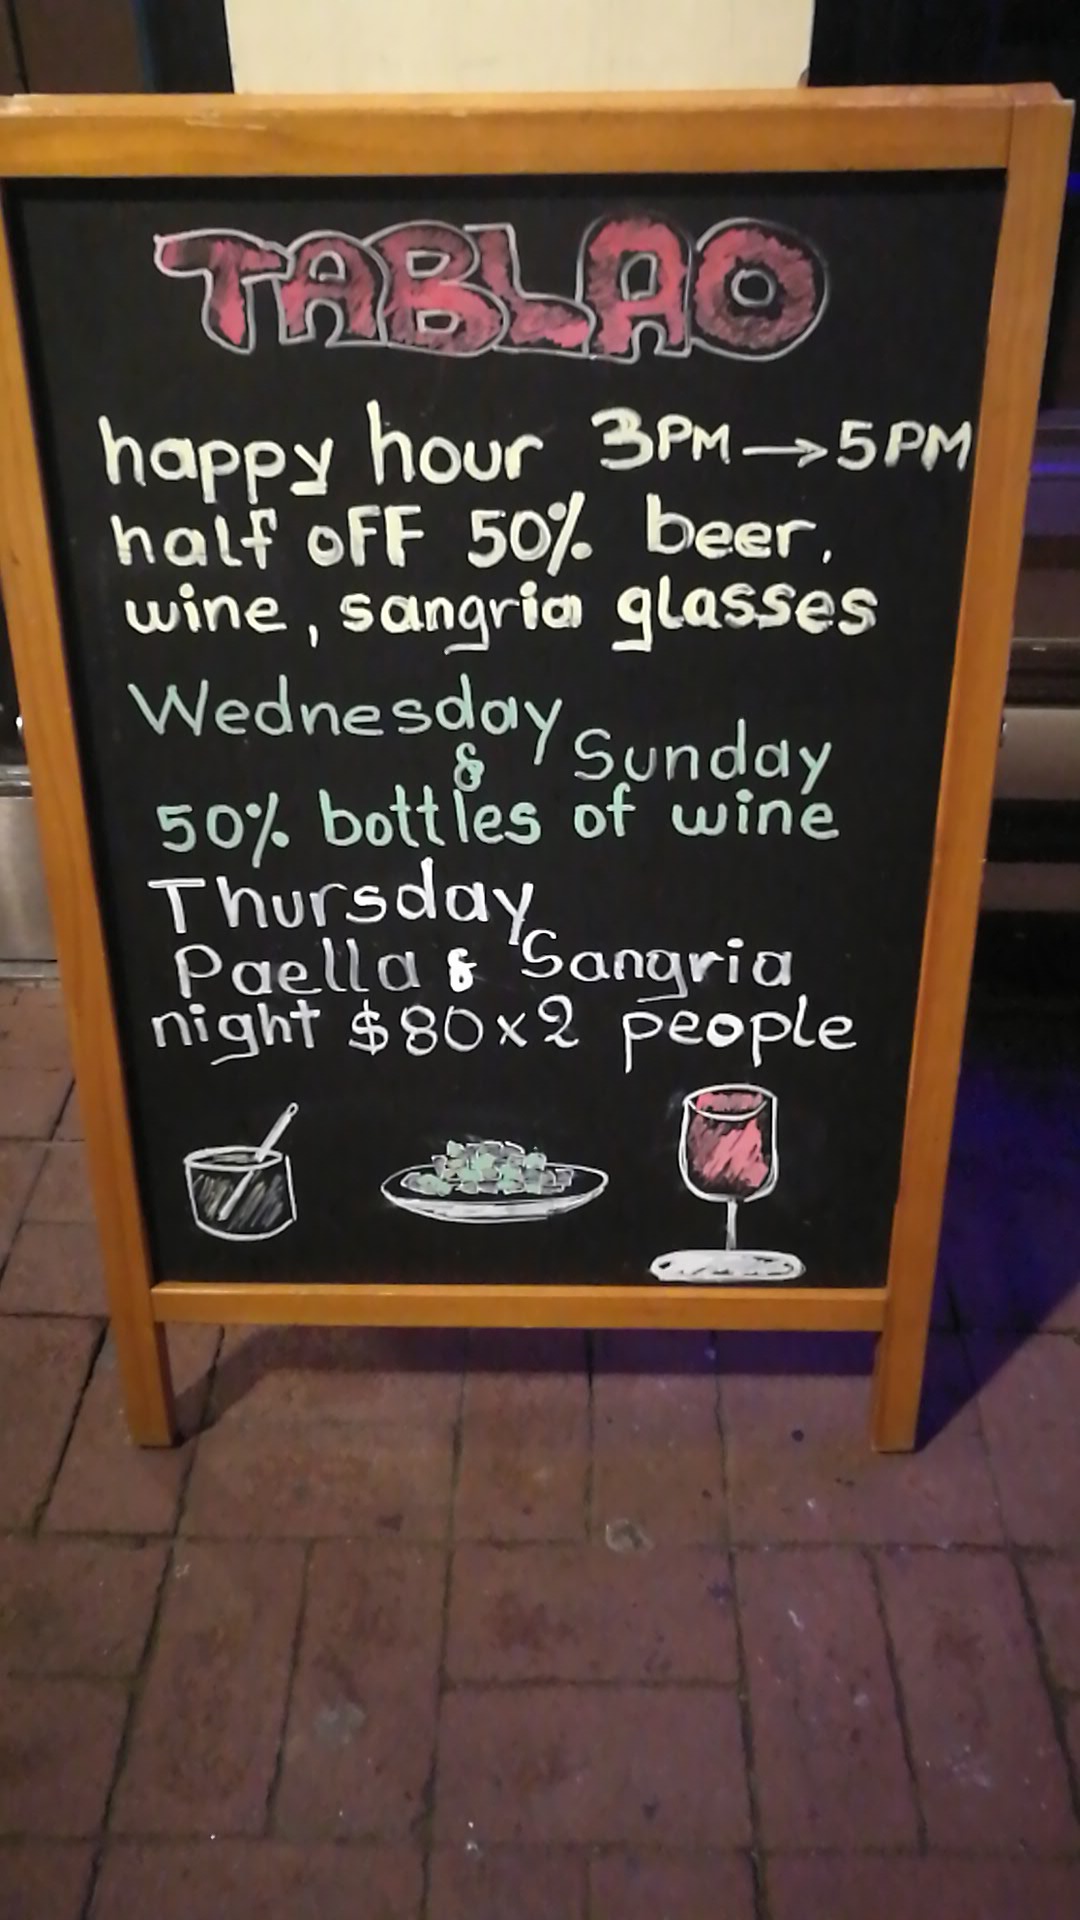 TABLAO
happy hour 3PM → 5PM
half oFF 50% beer,
wine, sangria glasses
Wednesday
& Sunday
50% bottles of wine
Thursday
Paella & Sangria
night $80 x 2 people